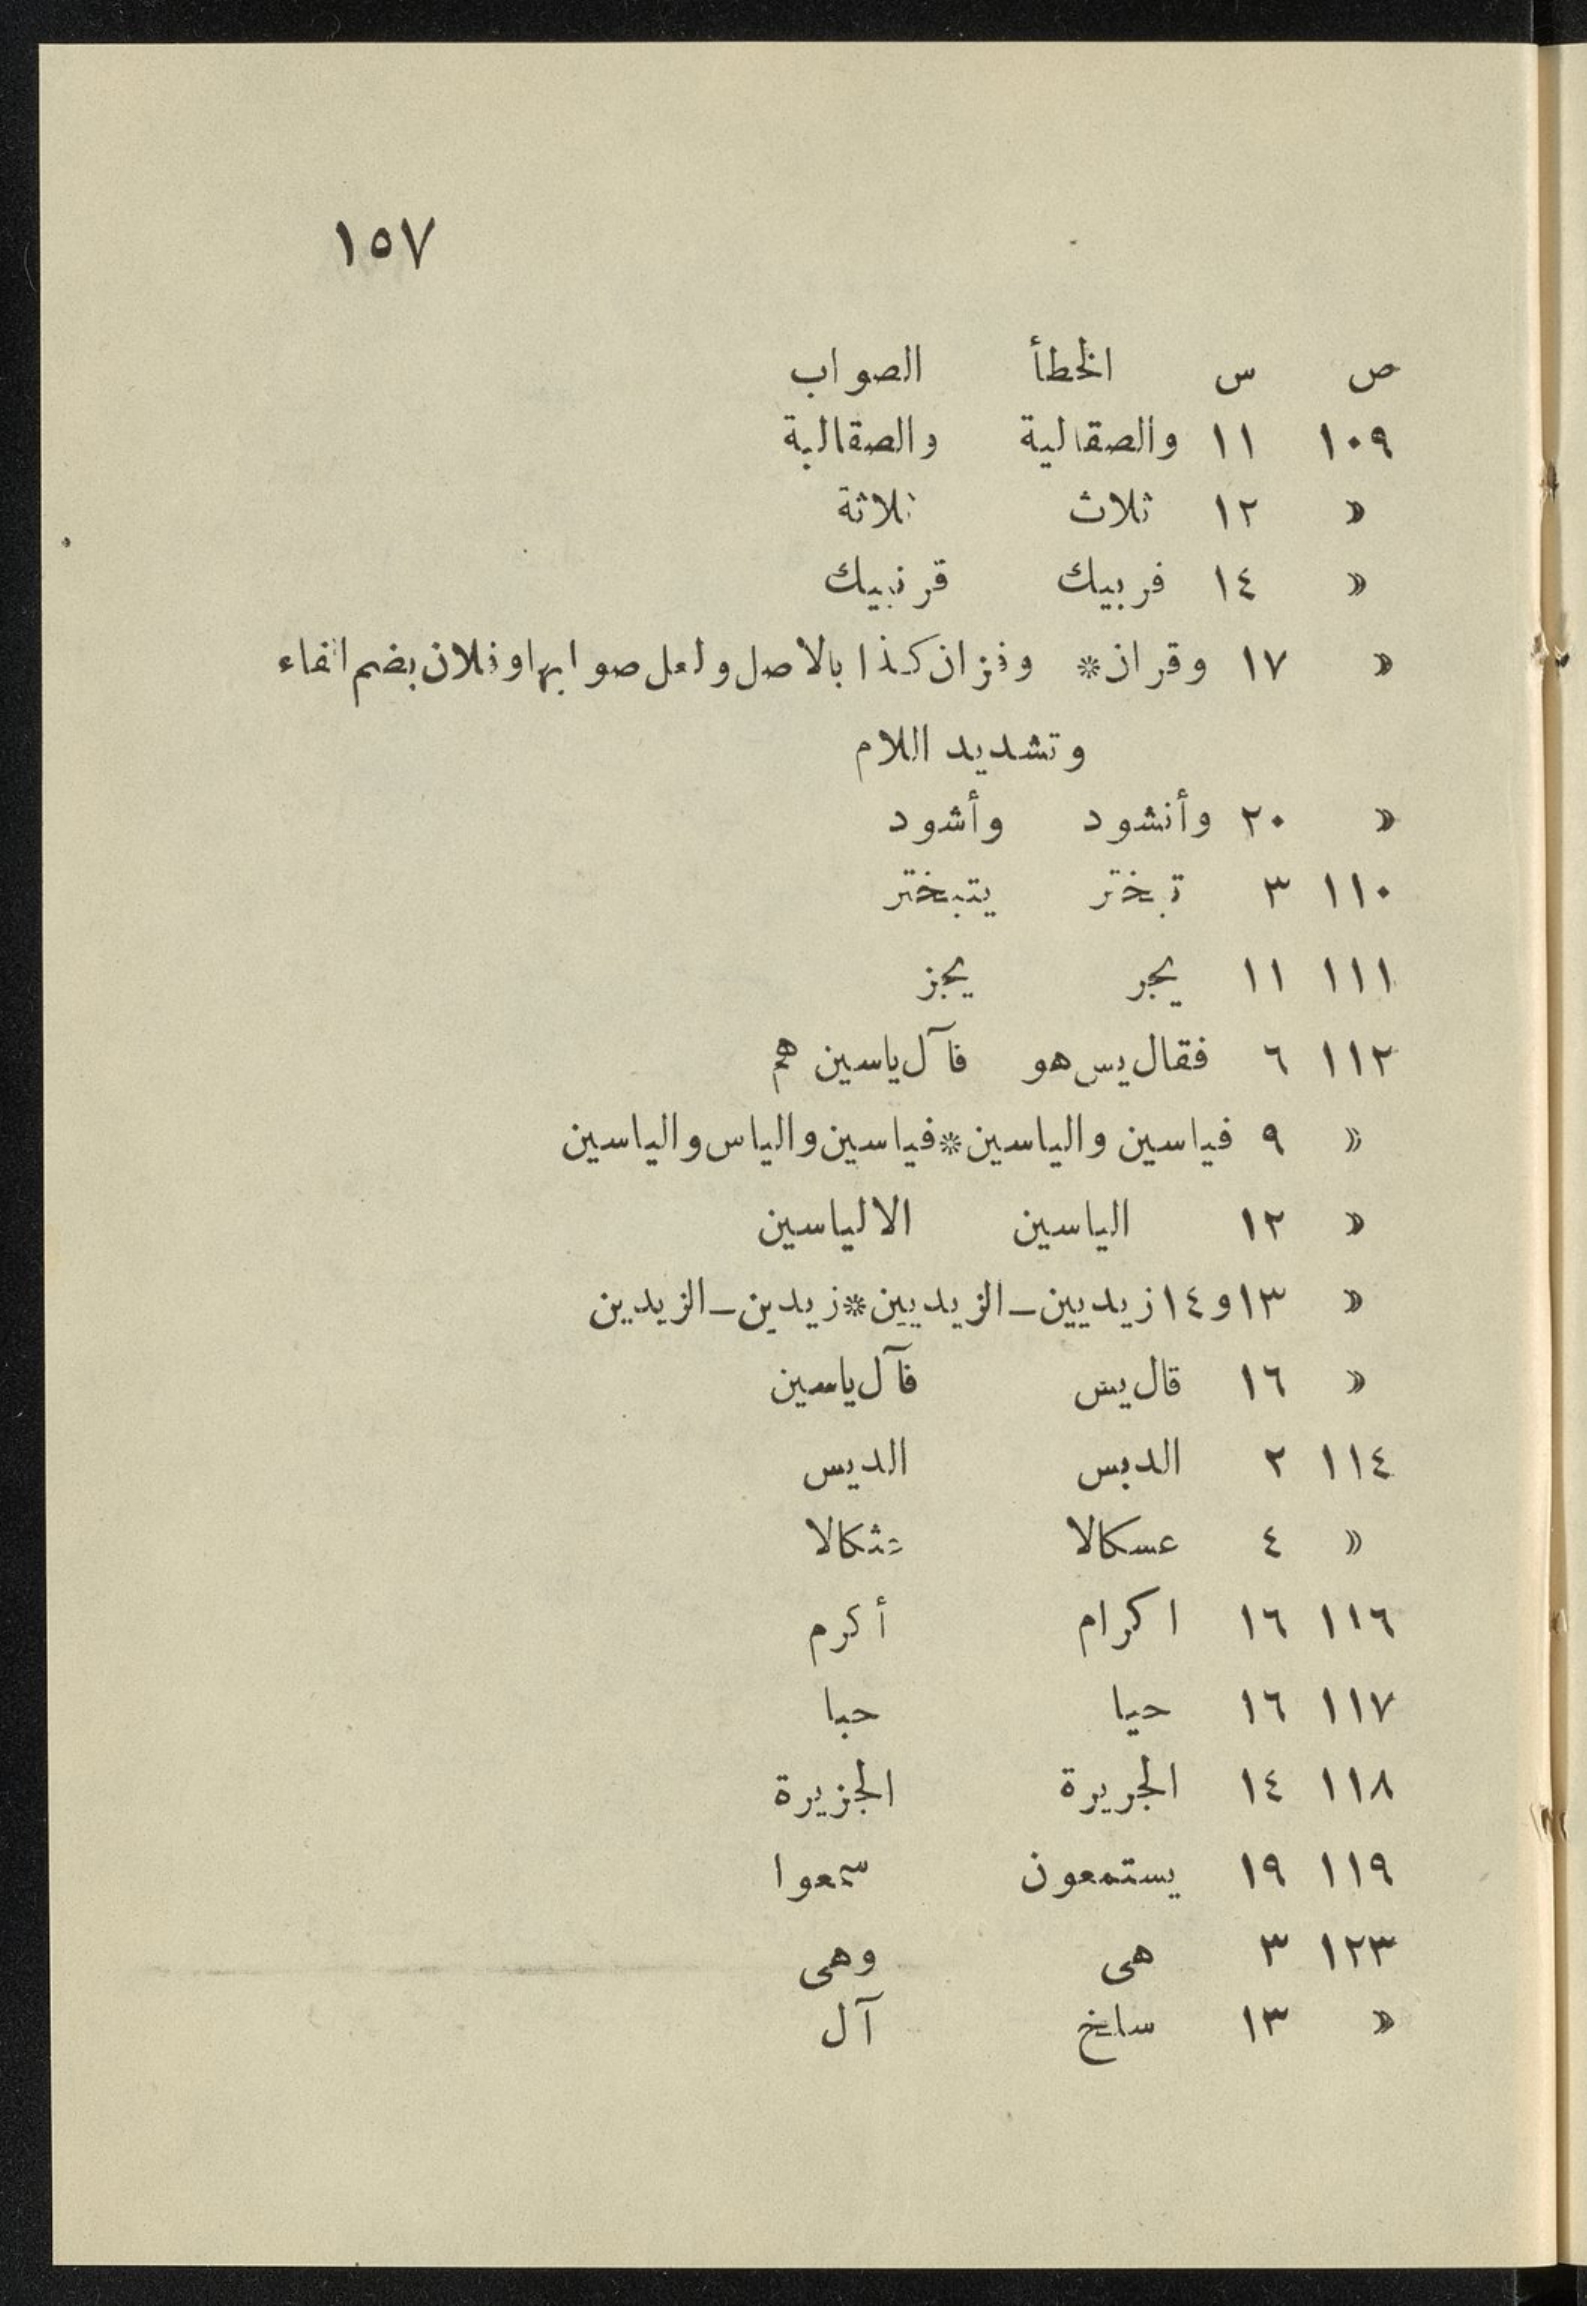 ١٥٧
ص س الخطأ الصواب
١٠٩ ١١ والصقالية والصقالبة
« ١٢ ثلاث ثلاثة
« ١٤ فربيك قرنبيك
« ١٧ وقران * وفزان كذا بالاصل ولعل صوابها وفلان بضم الفاء
وتشديد اللام
« ٢٠ وأنشود وأشود
١١٠ ٣ تبختر يتبختر
١١١ ١١ يجر يجز
١١٢ ٦ فقال يس هو فآل ياسين هم
« ٩ فياسين والياسين * فياسين والياس والياسين
« ١٢ الياسين الالياسين
« ١٣ و ١٤ زيديين ـ الزيديين * زيدين ـ الزيدين
« ١٦ قال يس فآل ياسين
١١٤ ٢ الدبس الديس
« ٤ عسكالا عثكالا
١١٦ ١٦ اكرام أكرم
١١٧ ١٦ حيا حبا
١١٨ ١٤ الجريرة الجزيرة
١١٩ ١٩ يستمعون سمعوا
١٢٣ ٣ هى وهى
« ١٣ سلخ آل